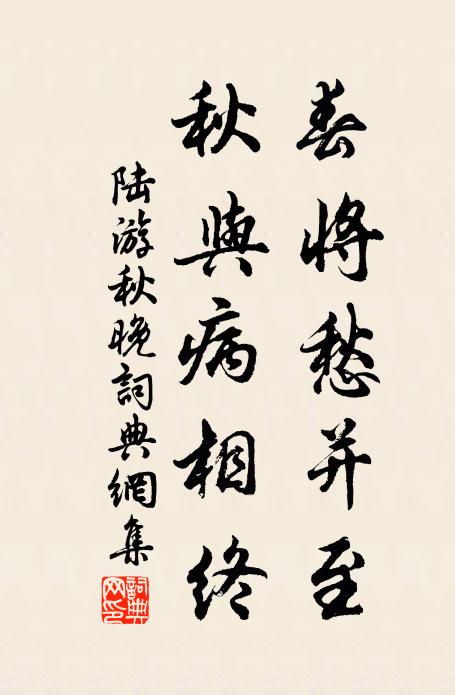 春將愁并至
秋與病相終
陆游秋晚詞典網集
詞典网印